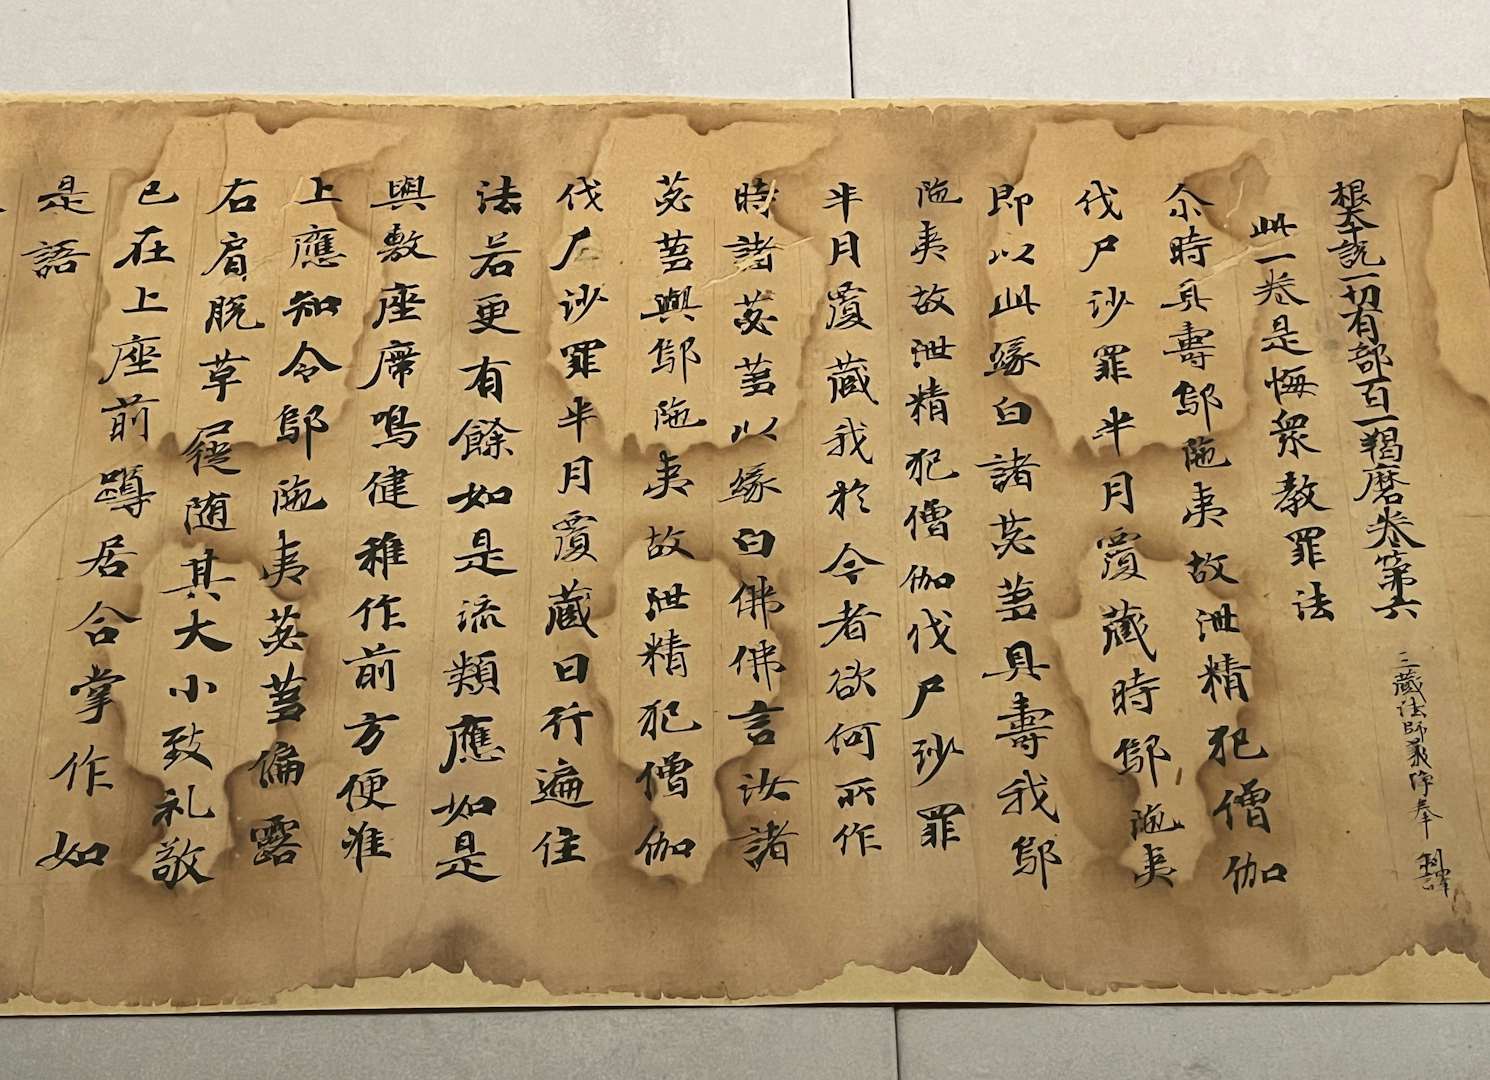 根本說一切有部百一羯磨卷第六 三藏法師義淨奉 制譯
此一卷是悔眾教罪法
尒時具壽鄔陁夷故泄精犯僧伽
伐尸沙罪半月覆藏時鄔陁夷
即以此緣白諸苾蒭具壽我鄔
陁夷故泄精犯僧伽伐尸沙罪
半月覆藏我於今者欲何所作
時諸苾蒭以緣白佛佛言汝諸
苾蒭與鄔陁夷故泄精犯僧伽
伐尸沙罪半月覆藏日行遍住
法若更有餘如是流類應如是
與敷座席鳴健稚作前方便准
上應知令鄔陁夷苾蒭偏露
右肩脫草屣随其大小致礼敬
已在上座前蹲居合掌作如
是語